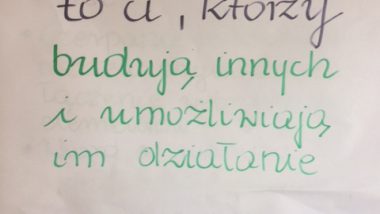 to ci, którzy
budują innych
i umożliwiają
im działanie